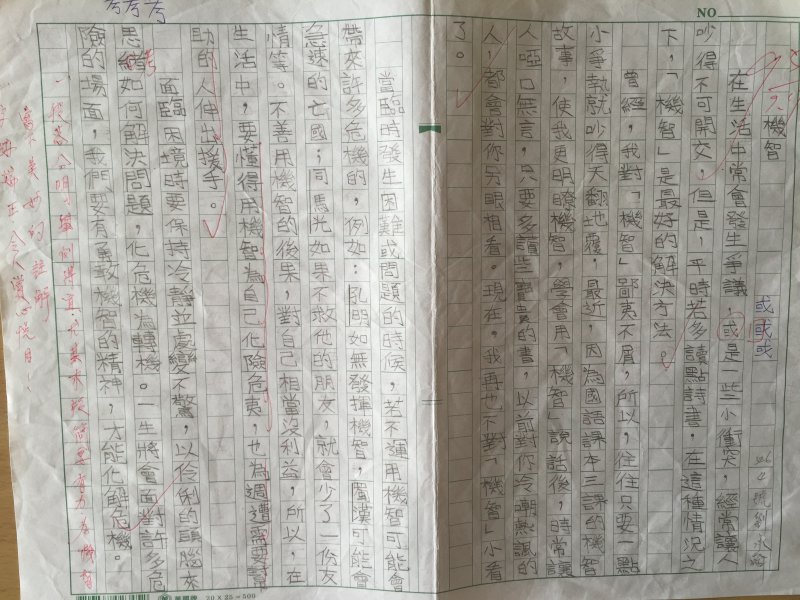 NO
機智
在生活中常會發生爭議,或是一些小衝突,經常讓人
吵得不可開交,但是,平時若多讀點詩書,在這種情況之
下,「機智」是最好的解決方法。
曾經,我對「機智」鄙夷不屑,所以,往往只要一點
小爭執就吵得天翻地覆,最近,因為國語課本三課的機智
故事,使我更明瞭機智,學會用「機智」說話後,時常讓
人啞口無言,只要多讀些寶貴的書,以前對你冷嘲熱諷的
人,都會對你另眼相看。現在,我再也不對「機智」小看
了。
當臨時發生困難或問題的時候,若不運用機智可能會
帶來許多危機的,例如:孔明如無發揮機智,蜀漢可能會
急速的亡國;司馬光如果不救他的朋友,就會少了一份友
情等。不善用機智的後果,對自己相當沒利益,所以,在
生活中,要懂得用機智為自己化險危夷,也為週遭需要幫
助的人伸出援手。
面臨困境時要保持冷靜並處變不驚,以伶俐的頭腦來
思考如何解決問題,化危機為轉機。一生將會面對許多危
險的場面,我們要有勇敢機智的精神,才能化解危機。
或或或
考考考
20 X 25 = 500